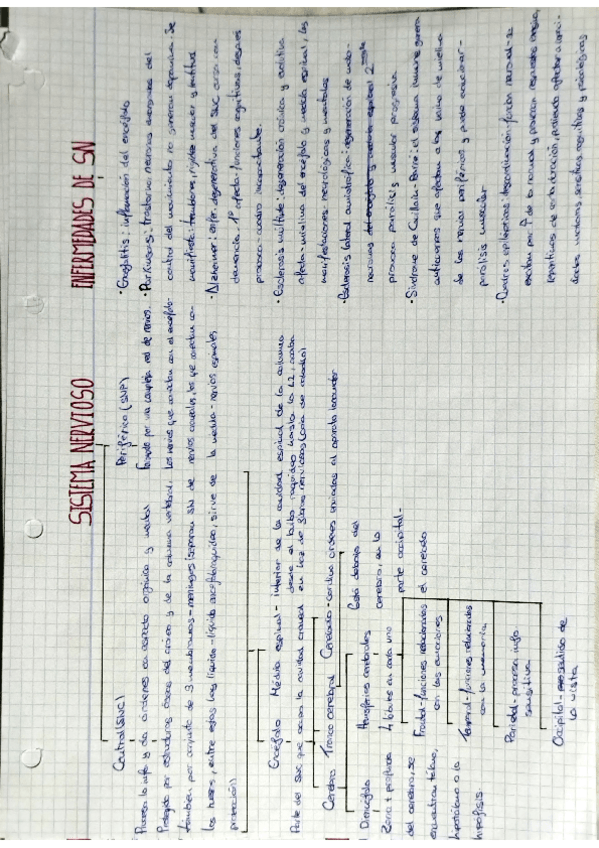 SISTEMA NERVIOSO
Central (SNC)
Procesa la info y da órdenes en aspecto orgánico y mental
Protegido por estructuras óseas del cráneo y de la columna vertebral,
también por conjunto de 3 membranas - meninges (separan SN de
los huesos, entre estas hay líquido - líquido encefaloraquídeo, sirve de
protección)
Periférico (SNP)
Formado por una compleja red de nervios.
Los nervios que conectan con el encéfalo-
nervios craneales, los que conectan con
la médula - nervios espinales
Encéfalo
Parte del SNC que ocupa la cavidad craneal
Médula espinal - interior de la cavidad espinal de la columna
desde el bulbo raquídeo hasta la L2, acaba
en haz de fibras nerviosas (cola de caballo)
Cerebro
Tronco cerebral
Cerebelo - coordina órdenes enviadas al aparato locomotor
Está debajo del
cerebro, en la
parte occipital
Diencéfalo
Zona + profunda
del cerebro, se
encuentran tálamo,
hipotálamo o la
hipófisis.
Hemisferios cerebrales
4 lóbulos en cada uno
Frontal - funciones relacionadas
con las emociones
Temporal - funciones relacionadas
con la memoria
Parietal - procesa info
sensitiva
Occipital - sentido de
la vista
ENFERMEDADES DE SN
· Encefalitis: inflamación del encéfalo
· Parkinsons: trastorno nervioso
control del movimiento
manifiesta: temblores, rigidez muscular y lentitud
· Alzheimer: enfer. degenerativa del SNC, cursa con
demencia. 1º afecta: funciones cognitivas, después
provoca: cuadro incapacitante.
· Esclerosis múltiple: degeneración crónica y
afecta - mielina del encéfalo y médula espinal, las
manifestaciones - neurológicas y mentales
· Esclerosis lateral amiotrófica: degeneración de moto-
neuronas
provoca parálisis muscular progresiva
· Síndrome de Guillain-Barré: el sistema inmune genera
anticuerpos que afectan a las vainas de mielina
de los nervios periféricos, y puede ocasionar -
parálisis muscular
· Cuadros epilépticos: función neuronal - se
excitan por de lo normal y provocan
repentinas de corta duración, pudiendo afectar a
síntomas sensitivos, cognitivos y psicológicos